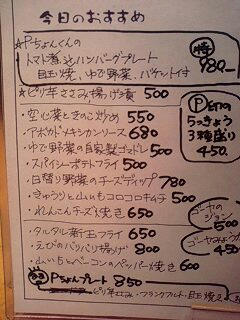 今日のおすすめ
☆Pちょんくんの
トマト煮込ハンバーグプレート
目玉焼、ゆで野菜、バケット付
特
980-
★ピリ辛ささみ揚げ漬 500
・空心菜ときのこ炒め 550
・アボカドメキシカンソース 680
・ゆで野菜の自家製ゴマドレ 500
・スパイシーポテトフライ 500
・日替り野菜のチーズディップ 780
・きゅうりと山いもコロコロキムチ 500
・れんこんチーズ焼き 650
・タルタル新玉フライ 650
・えびのパリパリ揚げ 800
・山いもとベーコンのペッパー焼き 600
Pちょんプレート 850
フランクフルト・目玉焼
P印の
5っきょう
3種盛り
450.
ゴーヤの
500
ゴーヤ
450